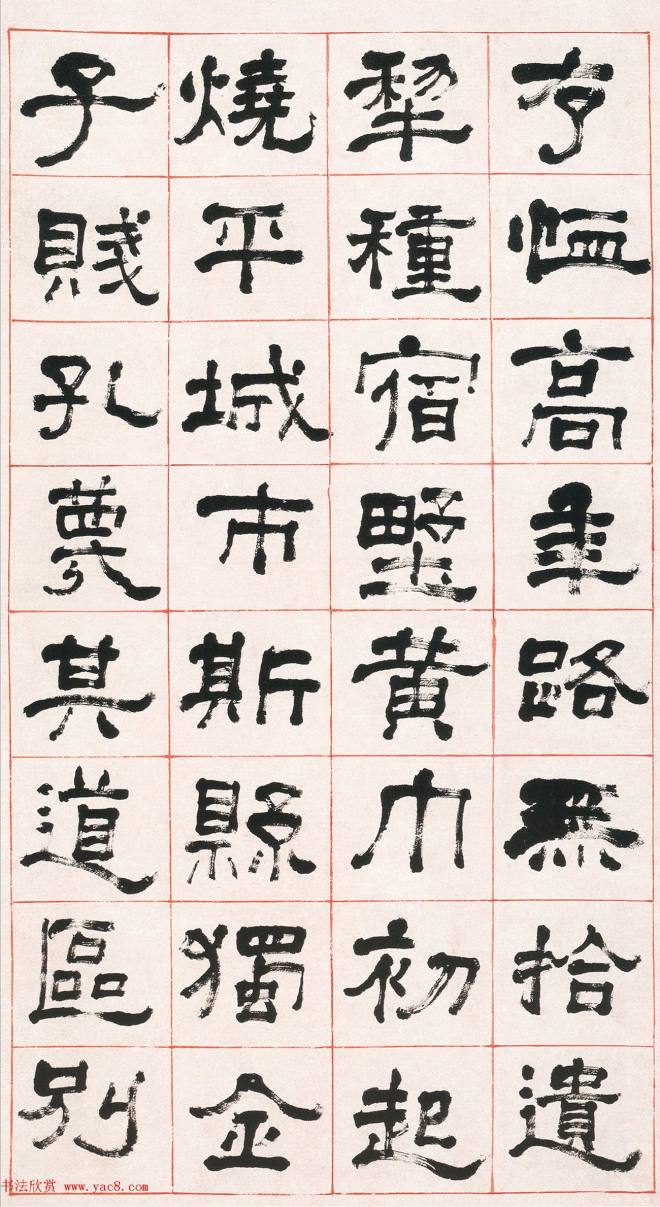 存恤高年路無拾遺
犂種宿野黃巾初起
燒平城市斯縣獨全
子賤孔蔑其道區別
书法欣赏 www.yac8.com